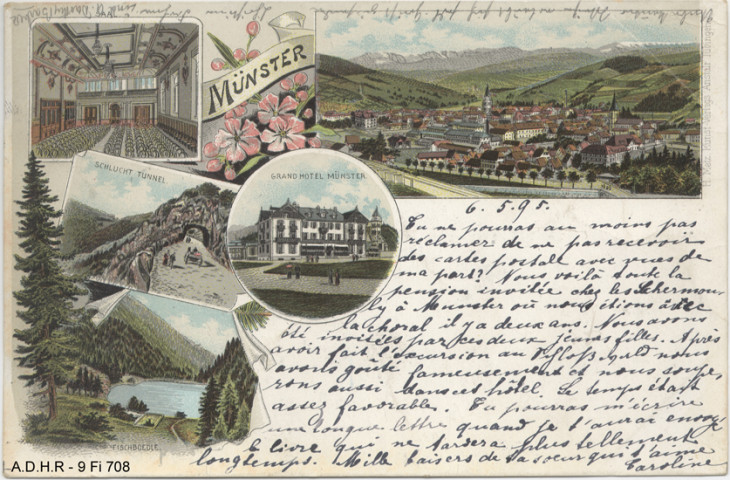 MÜNSTER
SCHLUCHT TUNNEL
GRAND HOTEL MÜNSTER
FISCHBOEDLE
6.5.95.
Tu ne pourras au moins pas
réclamer de ne pas recevoir
des cartes postale avec vues de
ma part? Nous voilà toute la
pension invitée chez les
à Munster où nous étions avec
la choral il y a deux ans. Nous avons
été invitées par ces deux jeunes filles. Après
avoir fait l'excursion au nous
avons goûté fameusement et nous soupe
rons aussi dans cet hôtel. Le temps étant
assez favorable. Tu pourras m'écrire
une longue lettre quand je t'aurai envoyé
le livre qui ne tardera plus tellement
longtemps. Mille baisers de ta sœur qui t'aime
Caroline
A.D.H.R - 9 Fi 708